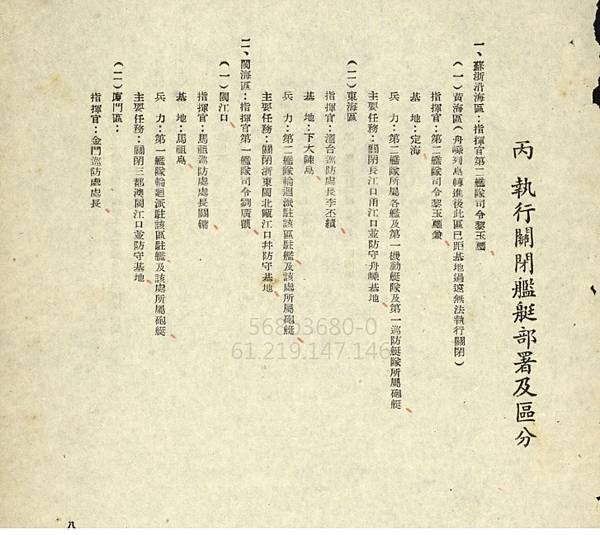 丙 執行關閉艦艇部署及區分
一、蘇浙沿海區：指揮官第二艦隊司令黎玉璽
（一）黃海區（舟嵊列島轉進後此區已距基地過遠無法執行關閉）
指揮官：第二艦隊司令黎玉璽兼
基 地：定海
兵 力：第二艦隊所屬各艦及第一機動艇隊及第一巡防艇隊所屬砲艇
主要任務：關閉長江口甬江口並防守舟嵊基地
（二）東海區
指揮官：溫台巡防處長李丕績
基 地：下大陳島
兵 力：第二艦隊輪迴派駐該區駐艦及該處所屬砲艇
主要任務：關閉浙東閩北甌江口并防守基地
二、閩海區：指揮官第一艦隊司令劉廣凱
（一）閩江口
指揮官：馬祖巡防處處長關鏞
基 地：馬祖島
兵 力：第一艦隊輪迴派駐該區駐艦及該處所屬砲艇
主要任務：關閉三都澳閩江口並防守基地
（二）廈門區：
指揮官：金門巡防處處長
八
56803680-0
61.219.147.146